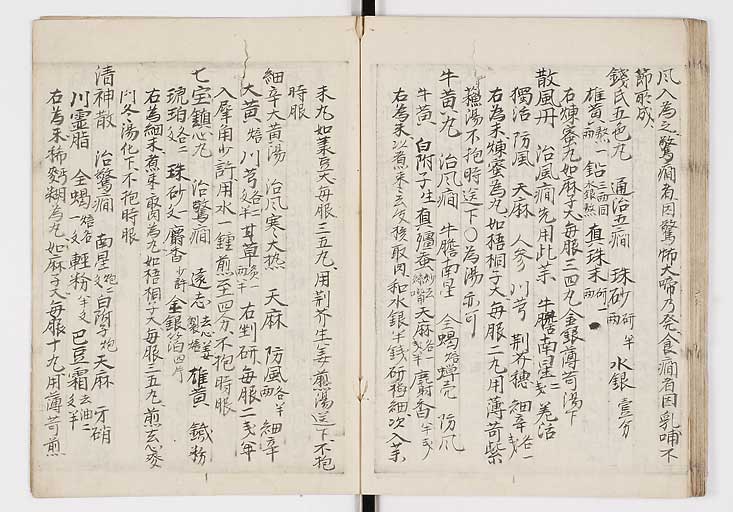 風入為之驚癇者因驚怖大啼乃発食癇者因乳哺不
節所成
錢氏五色丸 通治五癇 珠砂研半両 水銀壹分
雄黄一両熬 鉛三両同水銀熬 真珠末研一両
右煉蜜丸如麻子大每服三四丸金銀薄苛湯下
散風丹 治風癇先用此藥 牛膽南星二戔 羌活
獨活 防風 天麻 人参 川芎 荆芥穗 細辛各一戔
右為末煉蜜為丸如梧桐子大每服二丸用薄苛紫
蘓湯不抱時送下〇為湯亦可
牛黄丸 治風癇 牛膽南星 全蝎焙 蟬壳 防風
牛黄 白附子生 真殭蚕炒去絲嘴 天麻各一戔半 麝香半戔
右為末以煮枣去皮核取肉和水銀半錢研極細次入藥
末丸如菉豆大每服三五丸用荆芥生姜煎湯送下不抱
時服
細辛大黄湯 治風寒大熱 天麻 防風各半両 細辛
大黄焙 川芎各二戔半 甘草 右剉研每服二戔半
入犀角少許用水一鐘煎至四分不抱時服
七宝鎚心丸 治驚癇 遠志去心姜製焙 雄黄 鐵粉
琥珀各二戔 珠砂 麝香少許 金銀箔四片
右為細末煮枣取肉為丸如梧桐子大每服三五丸煎去心麥
門冬湯化下不抱時服
清神散 治驚癇 南星炮 白附子炮 天麻 牙硝
川靈脂 全蝎焙各一戔 輕粉半戔 巴豆霜去油二戔半
右為末稀麪糊為丸如麻子大每服十丸用薄苛煎